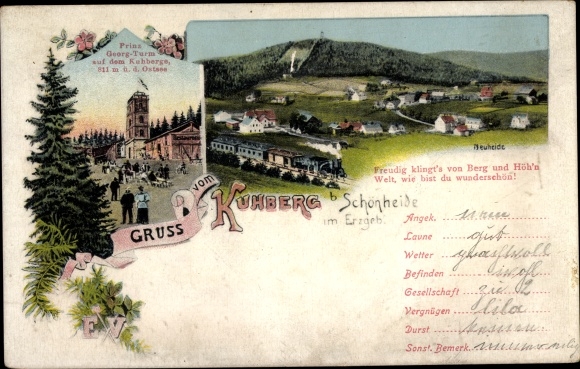 Prinz
Georg-Turm
auf dem Kuhberge,
811 m ü. d. Ostsee
Neuheide
Freudig klingt's von Berg und Höh'n
Welt, wie bist du wunderschön!
GRUSS vom KUHBERG b. Schönheide
im Erzgeb.
Angek.
Laune gut
Wetter prachtvoll
Befinden wohl
Gesellschaft zu 2
Vergnügen lila
Durst
Sonst. Bemerk.